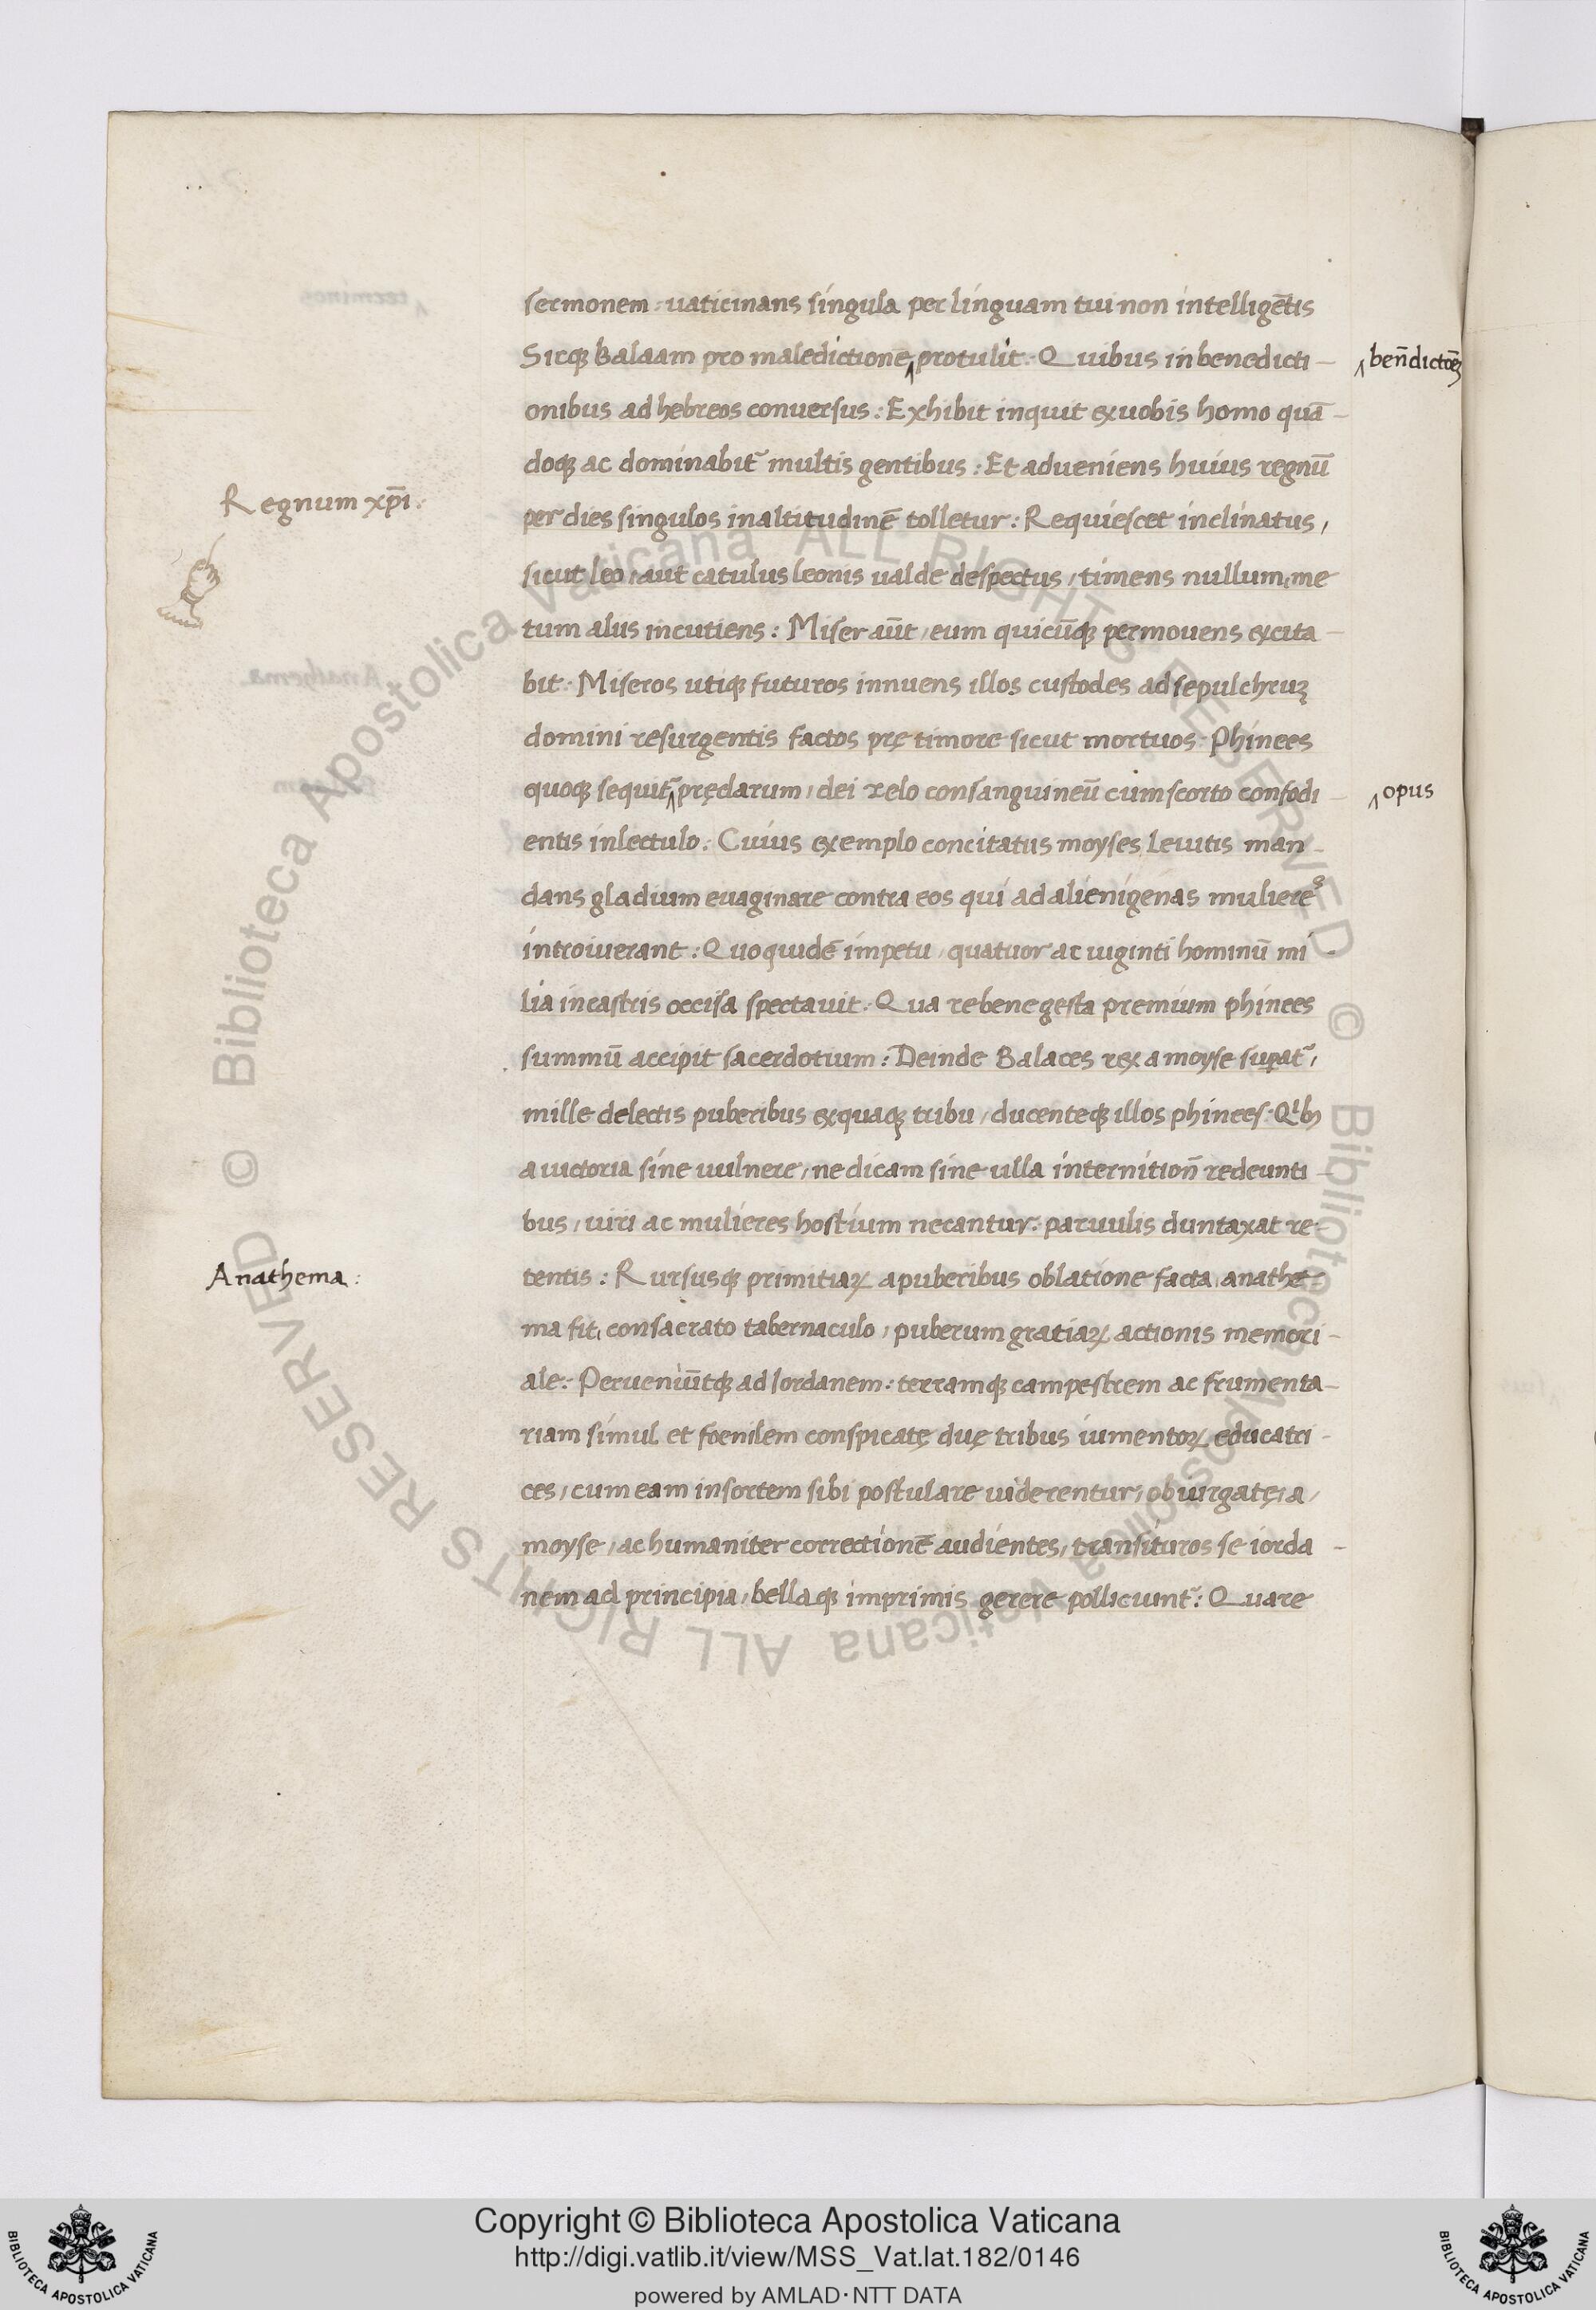 sermonem: uaticinans singula per linguam tui non intelligētis
Sicqꝫ Balaam pro maledictionē ‸ protulit. Quibus in benedicti-
‸ beñdictōeꝫ
onibus ad hebreos conuersus: Exhibit inquit ex uobis homo quā-
doqꝫ ac dominabit᷑ multis gentibus: Et adueniens huius regnū
Regnum xp̄i:
per dies singulos in altitudinē tolletur: Requiescet inclinatus,
sicut leo, aut catulus leonis ualde despectus, timens nullum, me
tum aliis incutiens: Miser aūt, eum quicūqꝫ permouens excita-
bit. Miseros utiqꝫ futuros innuens illos custodes ad sepulchruꝫ
domini resurgentis factos prę timore sicut mortuos. Phinees
quoqꝫ sequit᷑ ‸ pręclarum, dei zelo consanguineū cum scorto confodi-
‸ opus
entis in lectulo: Cuius exemplo concitatus moyses Leuitis man-
dans gladium euaginare contra eos qui ad alienigenas mulieres
introiuerant: Quo quidē impetu, quatuor ac uiginti hominū mi-
lia in castris occisa spectauit. Qua re bene gesta premium phinees
summū accipit sacerdotium: Deinde Balaces rex a moyse suꝑat᷑,
mille delectis puberibus ex quaqꝫ tribu, ducenteqꝫ illos phinees. Qⁱbꝫ
a uictoria sine uulnere, ne dicam sine ulla internition̄ redeunti-
bus, uiri ac mulieres hostium necantur: paruulis duntaxat re-
Anathema:
tentis: Rursusqꝫ primitiaꝝ a puberibus oblatione facta, anathe-
ma fit, consacrato tabernaculo, puberum gratiaꝝ actionis memori-
ale: Perueniūtqꝫ ad Iordanem: terramqꝫ campestrem ac frumenta-
riam simul et foenilem conspicatę duę tribus iumentoꝝ educatri-
ces, cum eam in sortem sibi postulare uiderentur, obiurgatę, a,
moyse, ac humaniter correctionē audientes, transituros se iorda-
nem ad principia, bellaqꝫ imprimis gerere polliciunt᷑: Quare
© Biblioteca Apostolica Vaticana ALL RIGHTS RESERVED © Biblioteca Apostolica Vaticana ALL RIGHTS RESERVED
Copyright © Biblioteca Apostolica Vaticana
http://digi.vatlib.it/view/MSS_Vat.lat.182/0146
powered by AMLAD·NTT DATA
BIBLIOTECA APOSTOLICA VATICANA
BIBLIOTECA APOSTOLICA VATICANA